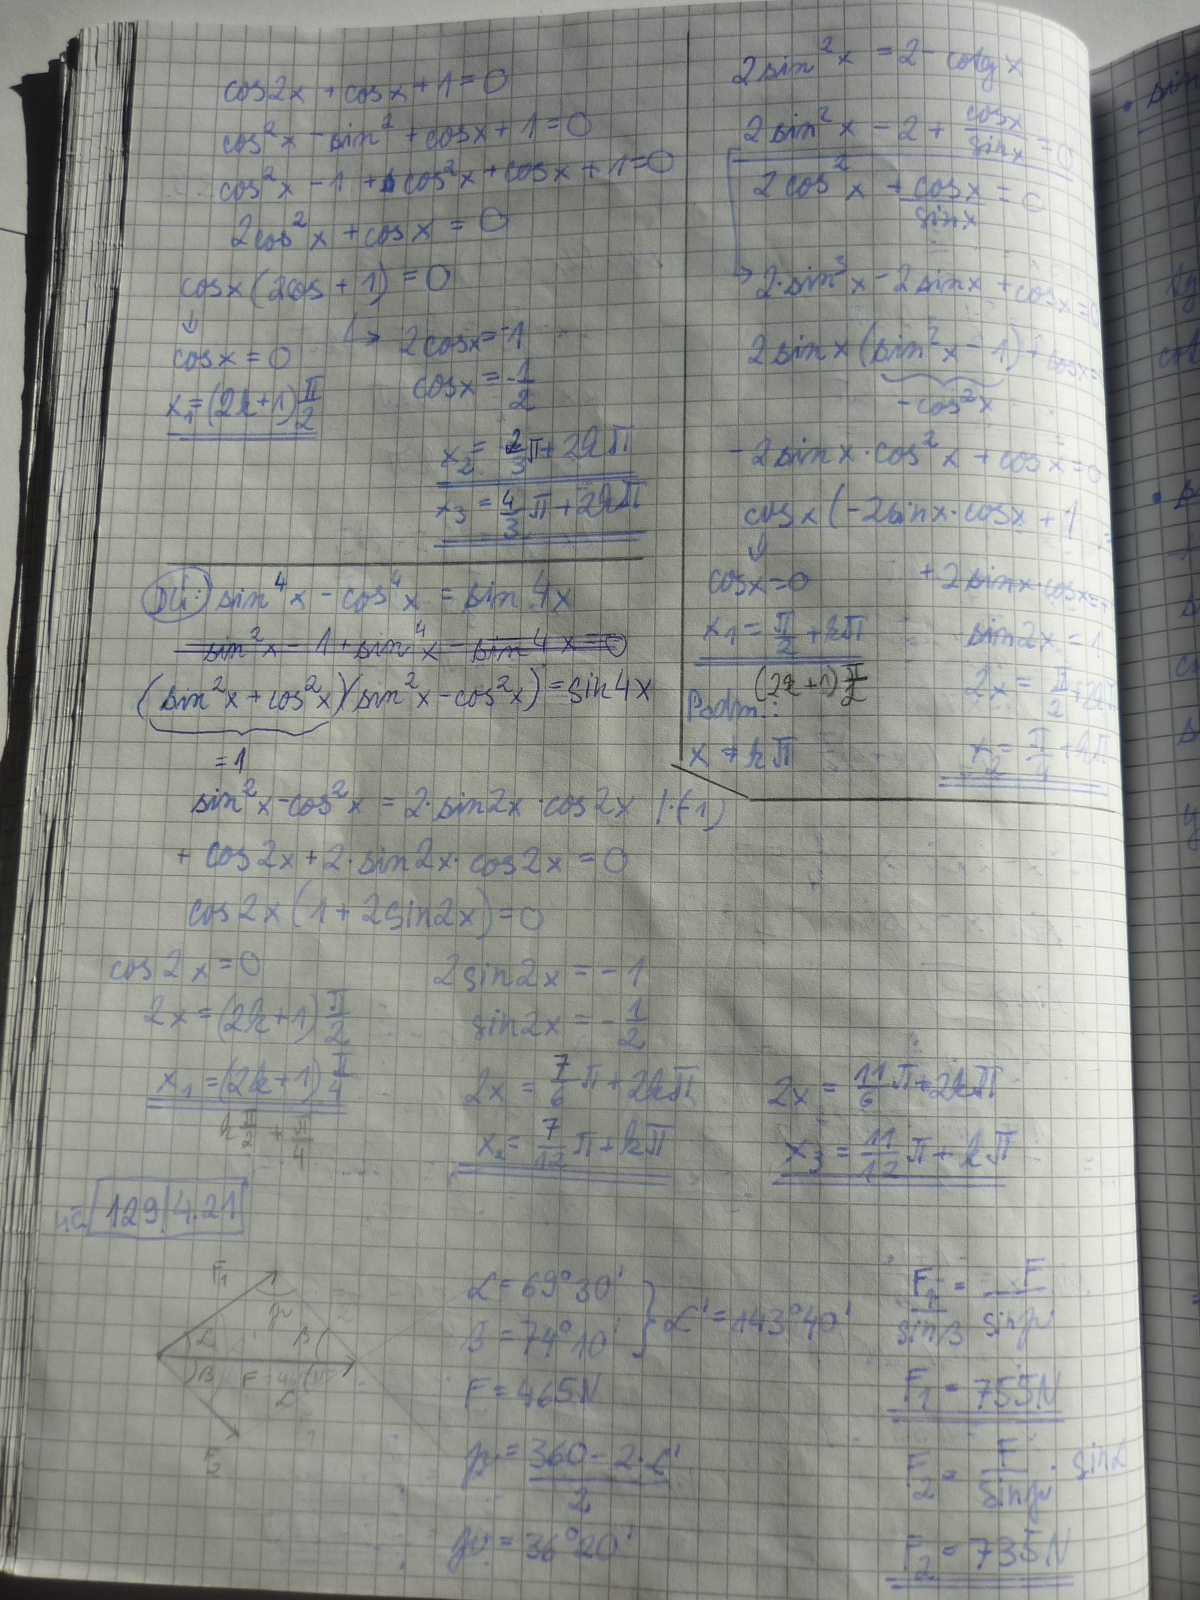 cos2x + cosx + 1 = 0
cos²x - sin² + cosx + 1 = 0
cos²x - 1 + cos²x + cosx + 1 = 0
2cos²x + cosx = 0
cosx (2cos + 1) = 0
↓
cosx = 0
x₁ = (2k+1) π/2
↳ 2cosx = -1
cosx = -1/2
x₂ = 2/3 π + 2kπ
x₃ = 4/3 π + 2kπ
2sin²x = 2 - cotg x
2sin²x - 2 + cosx/sinx = 0
2cos²x + cosx/sinx = 0
↳ 2·sin³x - 2sinx + cosx = 0
2sinx (sin²x - 1) + cosx =
-cos²x
-2sinx·cos²x + cosx = 0
cosx (-2sinx·cosx + 1 =
↓
cosx = 0
x₁ = π/2 + kπ
(2k+1) π/2
Podm.:
x ≠ kπ
+2sinx·cosx = +
sin2x = 1
2x = π/2 + 2kπ
x₂ = π/4 + kπ
DÚ: sin⁴x - cos⁴x = sin 4x
sin²x - 1 + sin⁴x - sin4x = 0
(sin²x + cos²x)(sin²x - cos²x) = sin4x
= 1
sin²x - cos²x = 2·sin2x·cos2x |·(-1)
+ cos2x + 2·sin2x·cos2x = 0
cos2x (1 + 2sin2x) = 0
cos2x = 0
2x = (2k+1) π/2
x₁ = (2k+1) π/4
k π/2 + π/4
2sin2x = -1
sin2x = -1/2
2x = 7/6 π + 2kπ
x₂ = 7/12 π + kπ
2x = 11/6 π + 2kπ
x₃ = 11/12 π + kπ
129/4.21
F₁
γ
α
β
β
α
F₂
α = 69°30'
β = 74°10'
} α' = 143°40'
F = 465N
γ = (360 - 2·α')/2
γ = 36°20'
F₁/sinβ = F/sinγ
F₁ = 755N
F₂ = F/sinγ · sinα
F₂ = 735N